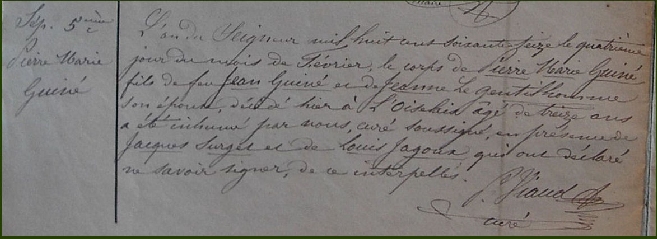 Sép. 5ième
Pierre Marie
Guiné
L'an du Seigneur mil huit cent soixante seize le quatrième
jour du mois de Février, le corps de Pierre Marie Guiné
fils de feu Jean Guiné et de Jeanne Le gentilhomme
son épouse, décédé hier à L'Oiselais âgé de treize ans
a été inhumé par nous, curé soussigné, en présence de
Jacques Surget et de Louis Jagoux qui ont déclaré
ne savoir signer, de ce interpellés.
P. Viaud
curé